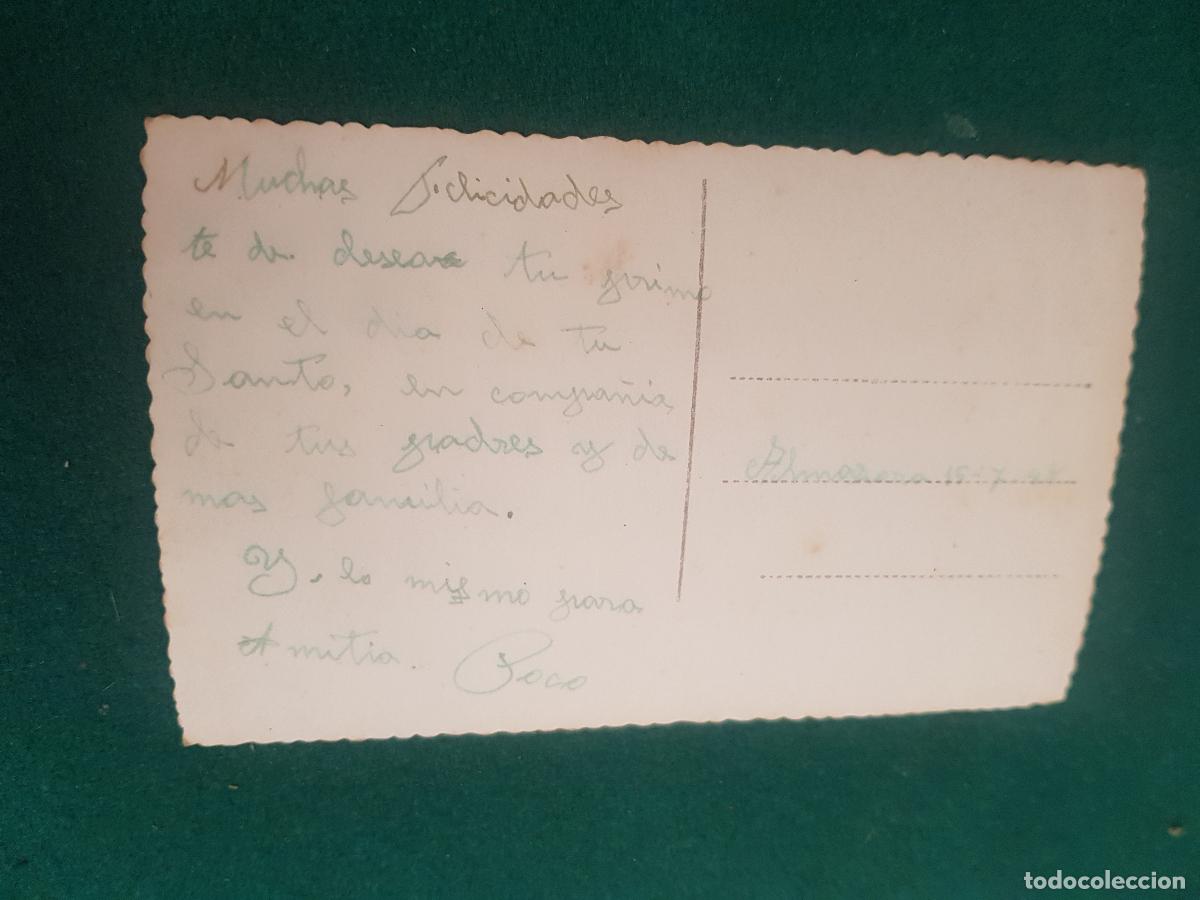 Muchas Felicidades
te de desear tu primo
en el dia de tu
Santo, en compañia
de tus padres y de
mas familia.
Y. lo mismo para
Amitia. Poco
Almazora 15-7-
todocoleccion